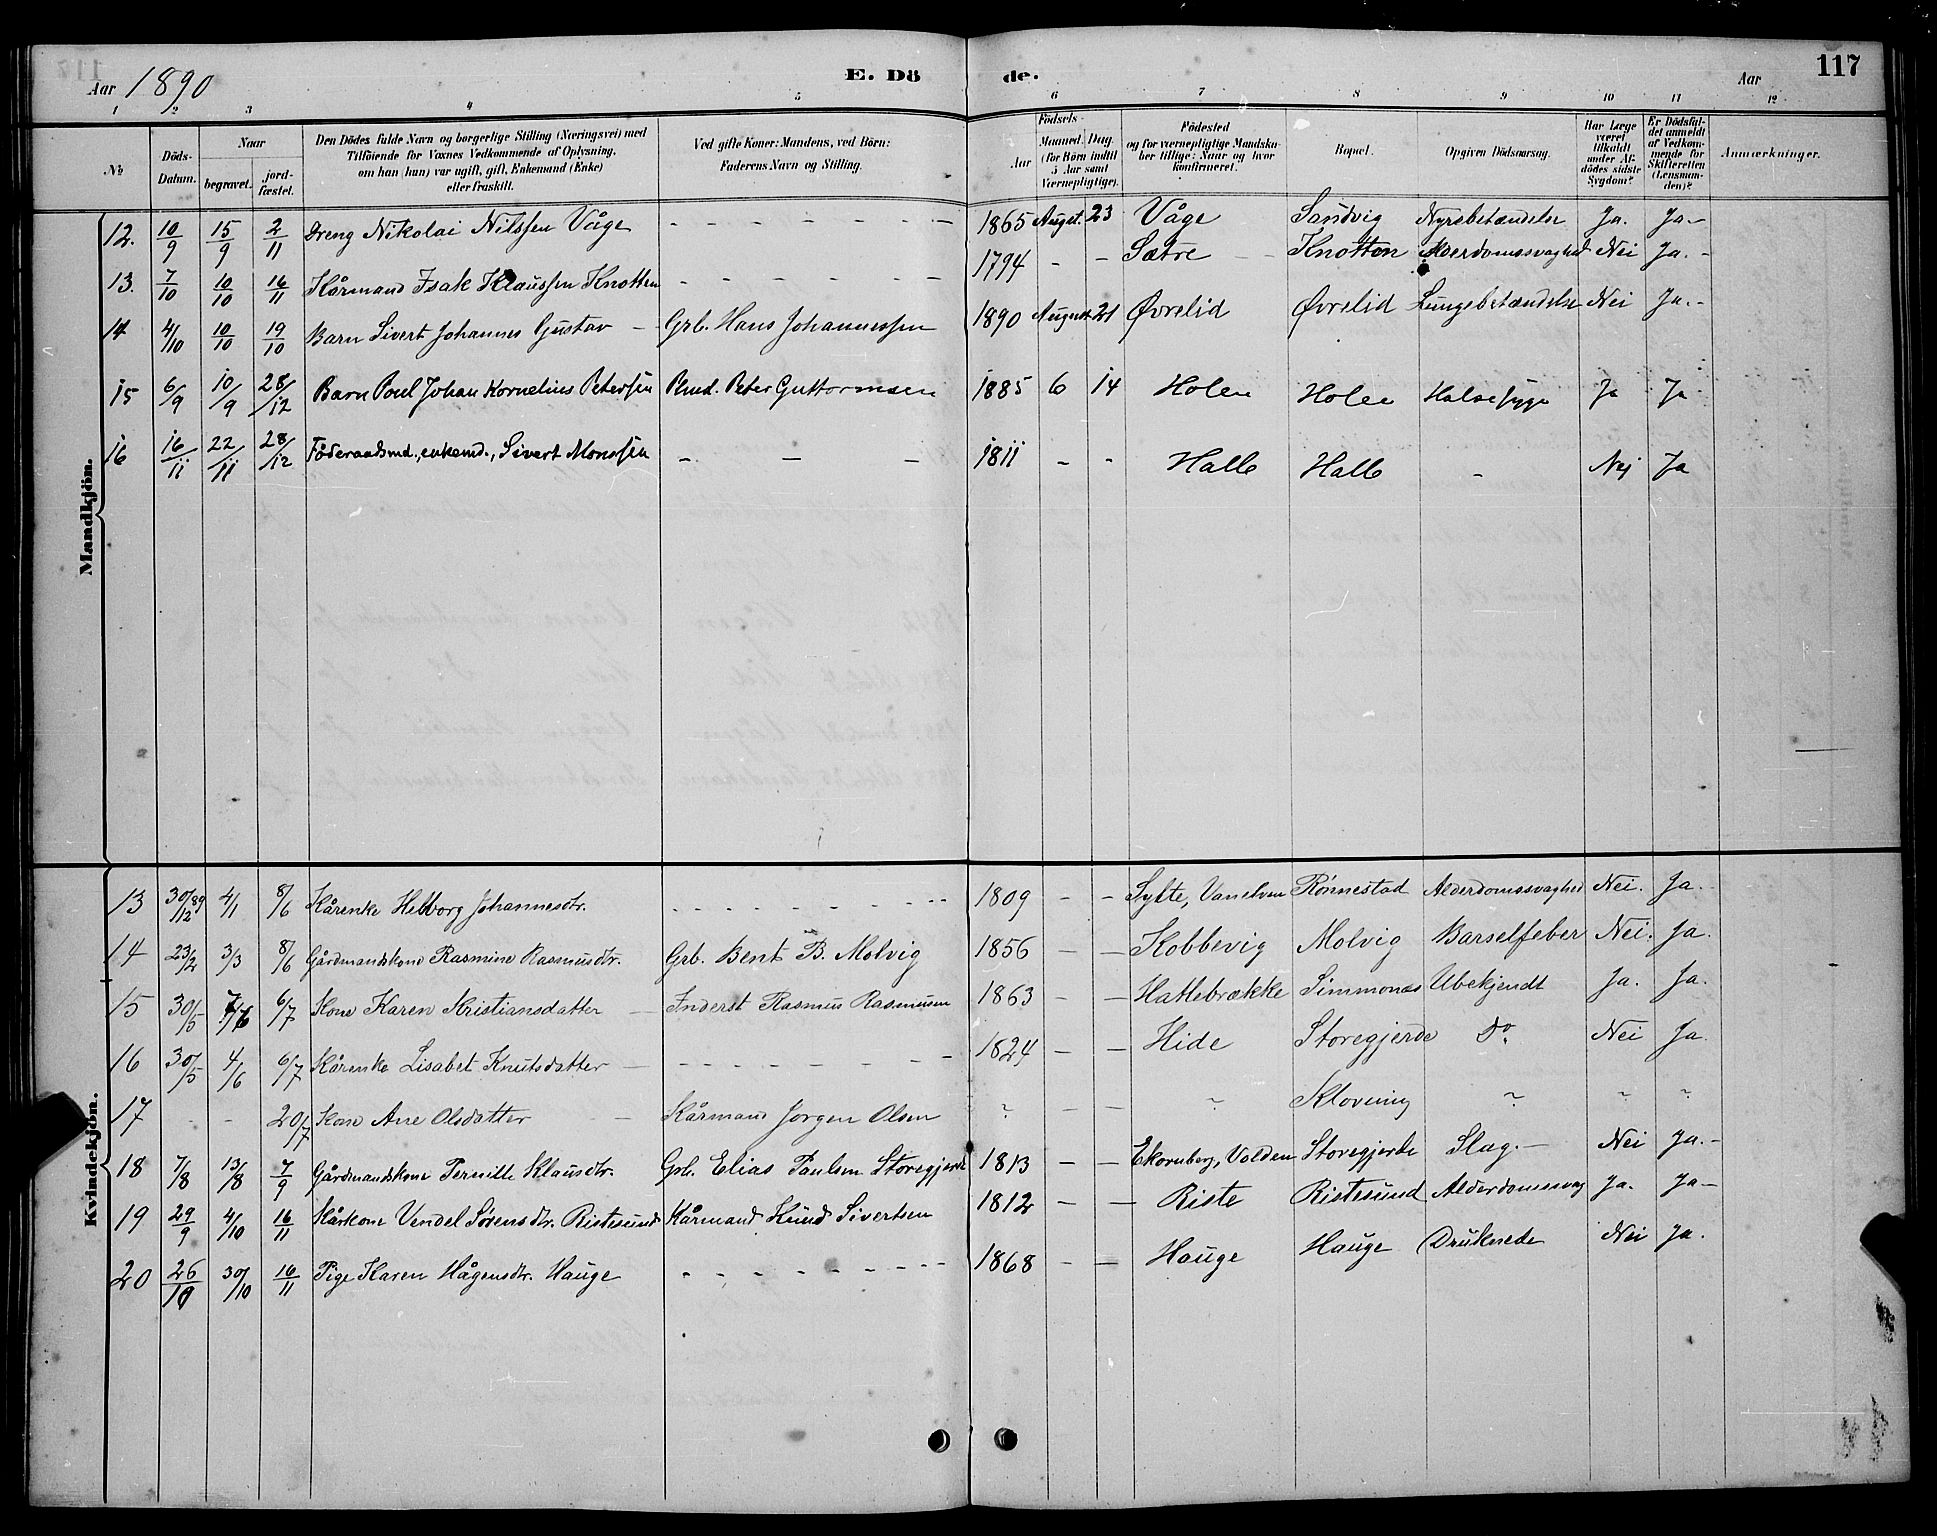 Aar 1890 E. Dö de. Aar 117
1 2 3 4 5 6 7 8 9 10 11 12
No Döds-Datum. Naar begravet. jord-fæstet. Den Dödes fulde Navn og borgerlige Stilling (Næringsvei) med Tilföiende for Voxnes Vedkommende af Oplysning, om han (hun) var ugift, gift, Enkemand (Enke) eller fraskilt. Ved gifte Koner: Mandens, ved Börn: Faderens Navn og Stilling. Födsels- Aar Maaned Dag. (for Börn indtil 5 Aar samt Værnepligtige). Födested og for værnepligtige Mandskaber tillige: Naar og hvor konfirmeret. Bopæl. Opgiven Dödsaarsag. Har Læge været tilkaldt under Afdödes sidste Sygdom? Er Dödsfaldet anmeldt af Vedkommende for Skifteretten (Lensmanden)? Anmærkninger.
Mandkjön.
12. 10/9 15/9 2/11 Dreng Nikolai Nilssen Våge - - - - - - - 1865 August. 23 Våge Sandvig Nyrebetændelse Ja. Ja.-
13. 7/10 10/10 16/11 Kårmand Isak Klaussen Knotten - - - - - - 1794 - - Sætre Knotten Alderdomssvaghed Nei Ja.-
14 4/10 10/10 19/10 Barn Sivert Johannes Gustav - Grb. Hans Johannessen 1890 August 21 Øvrelid Øvrelid Lungebetændelse Nei Ja.-
15 6/9 10/9 28/12 Barn Poul Johan Kornelius Petersen Peter Guttormsen 1885 6 14 Holen Holen Halssyge Ja Ja
16 16/11 22/11 28/12 Föderaadsmd., enkemd., Sivert Monssen - - - 1811 - - Halle Halle - Nej Ja
Kvindekjön.
13 30/12 89 4/1 8/6 Kårenke Helborg Johannesdtr. - - - - - - - 1809 - - Sylte, Vanelven Rønnestad Alderdomssvaghed Nei. Ja.
14 23/2 3/3 8/6 Gårdmandskone Rasmine Rasmusdtr. Grb. Bent B. Molvig 1856 - - Kobbevig Molvig Barselfeber Nei. Ja.
15 30/5 7/6 6/7 Kone Karen Kristiansdatter - Inderst Rasmus Rasmusen 1863 - - Hattebrække Simmones Ubekjendt Ja. Ja.
16 30/5 4/6 6/7 Kårenke Lisabet Knutsdatter - - - - - - - 1824 - - Hide Storegjerde do. Nei Ja.
17 - - 20/7 Kone Ane Olsdatter - Kårmand Jørgen Olsen ? - - ~ Klovning ~ ~ ~
18 7/8 13/8 7/9 Gårdmandskone Pernille Klausdtr. Grb. Elias Paulsen Storegjerde 1813 - - Ekornberg, Volden Storegjerde Slag.- Nei Ja.-
19 29/9 4/10 16/11 Kårkone Vendel Sørensdtr. Ristesund Kårmand Knud Sivertsen 1812 - - Riste Ristesund Alderdomssvag Ja. Ja-
20 26/10 30/10 16/11 Pige Karen Hågensdtr. Hauge - - - - - - - 1868 - - Hauge Hauge Druknede Nei Ja.